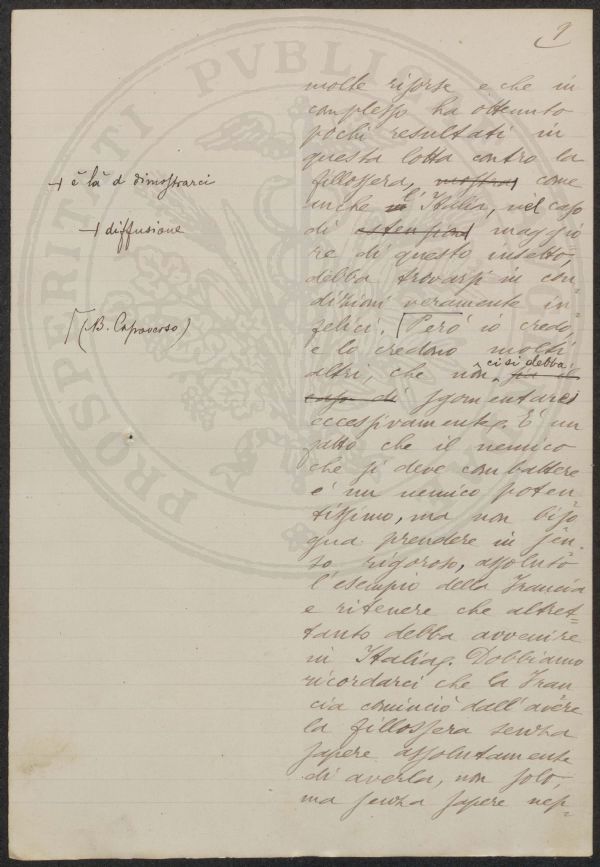 9
molte risorse e che in
complesso ha ottenuto
pochi resultati in
questa lotta contro la
+ è là a dimostrarci
fillossera, mostra come
anche in Italia, nel caso
+ diffusione
di estensione maggio
re di questo insetto,
debba trovarsi in con
dizioni veramente in=
(B. Capoverso)
felici. Però io credo,
e lo credono molti
altri, che non ci si debba
sia il
caso di sgomentarci
eccessivamente. È un
fatto che il nemico
che si deve combattere
è un nemico poten
tissimo, ma non biso
gna prendere in sen
so rigoroso, assoluto
l'esempio della Francia
e ritenere che altret=
tanto debba avvenire
in Italia. Dobbiamo
ricordarci che la Fran
cia cominciò dall'avere
la fillossera senza
sapere assolutamente
di averla, non solo,
ma senza sapere nep=
PROSPERITATI PVBLICAE